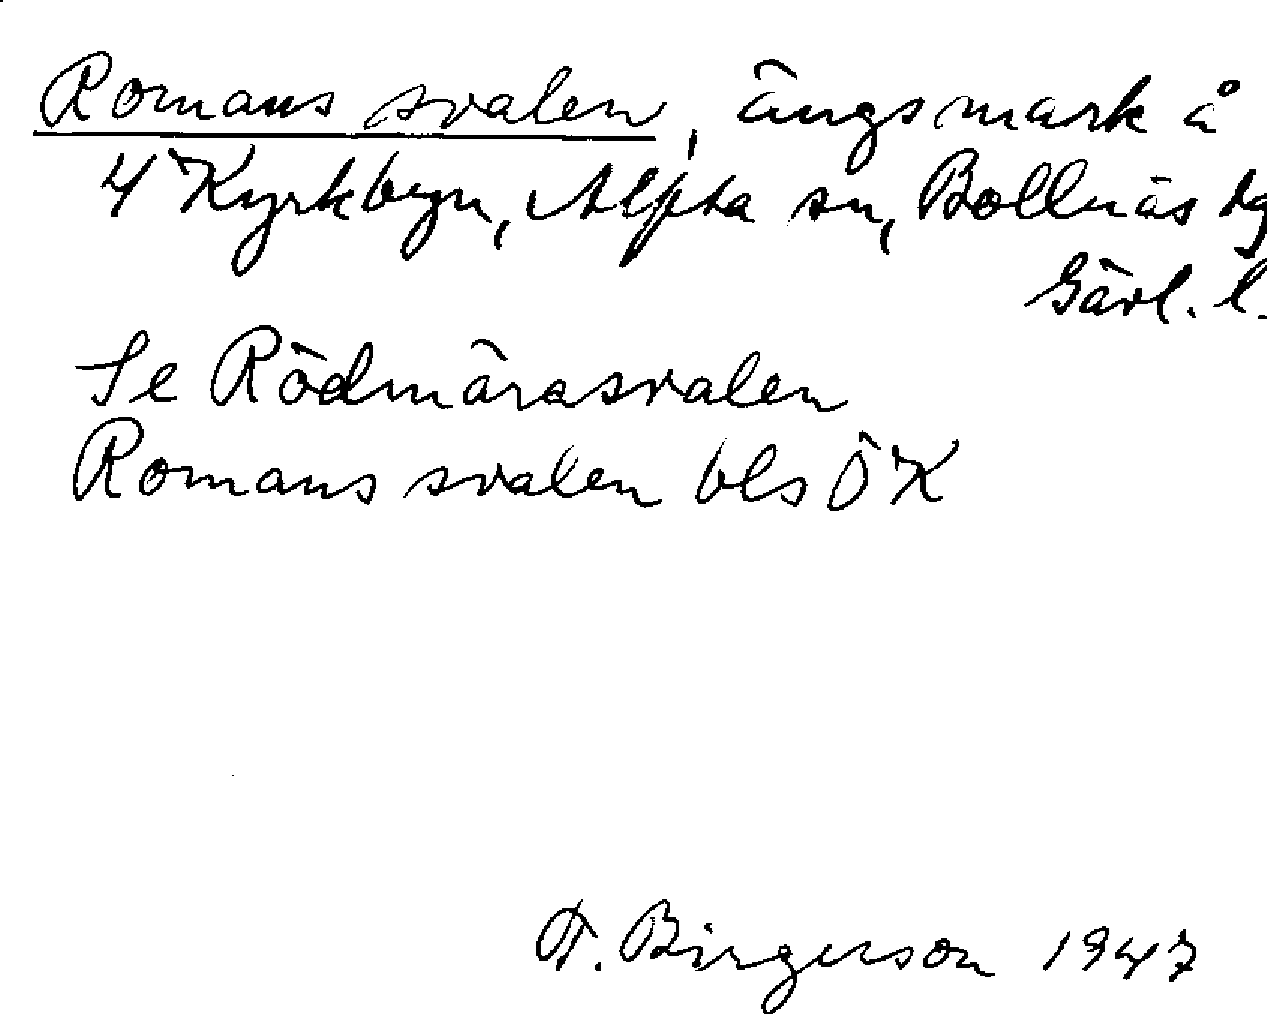 Romans svalen, ängsmark å
4 Kyrkbyn, Alfta sn, Bollnäs tg
Gävl. l.
Se Rödmärasvalen
Romans svalen bls ÖK
Birgerson 1947